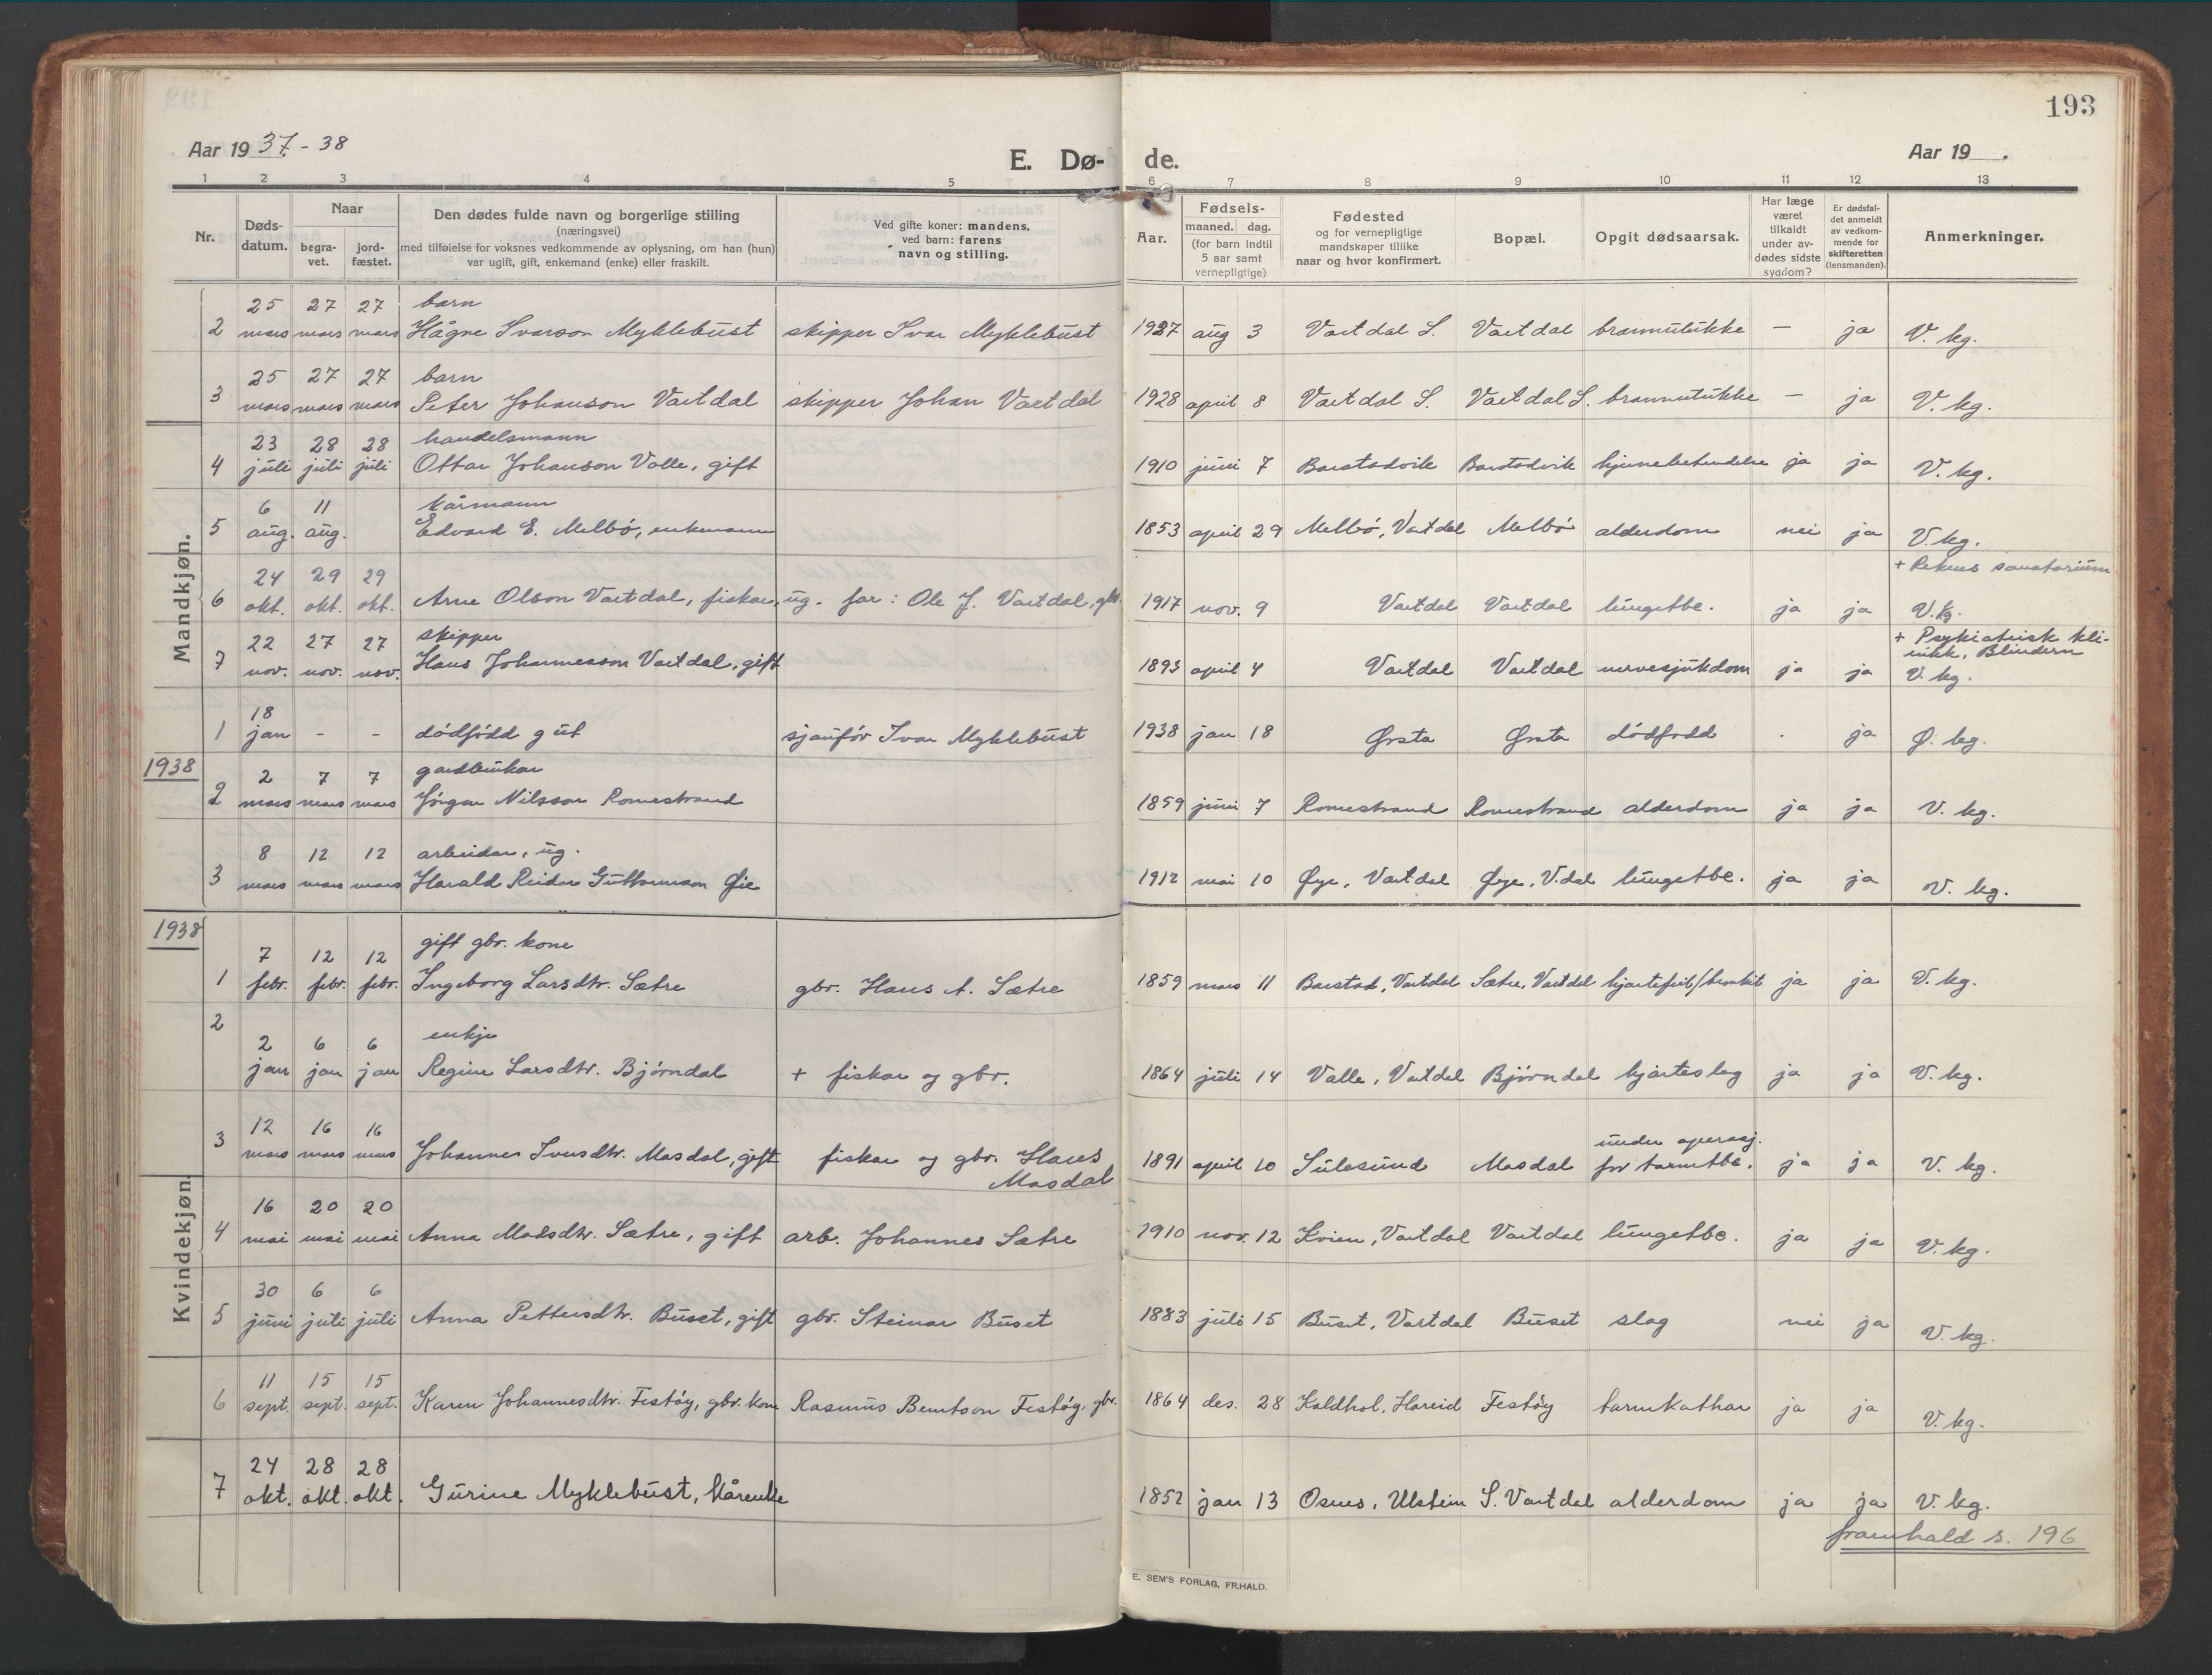 193
Aar 1937 - 38
E. Dø-
de.
Aar 19__.
1 2 3 4 5 6 7 8 9 10 11 12 13
Nr.
Døds-
datum.
Naar
begra-
vet.
jord-
fæstet.
Den dødes fulde navn og borgerlige stilling
(næringsvei)
med tilføielse for voksnes vedkommende av oplysning, om han (hun)
var ugift, gift, enkemand (enke) eller fraskilt.
Ved gifte koner: mandens,
ved barn: farens
navn og stilling.
Aar.
Fødsels-
maaned. dag.
(for barn indtil
5 aar samt
vernepligtige)
Fødested
og for vernepligtige
mandskaper tillike
naar og hvor konfirmert.
Bopæl.
Opgit dødsaarsak.
Har læge
været
tilkaldt
under av-
dødes sidste
sygdom?
Er dødsfal-
det anmeldt
av vedkom-
mende for
skifteretten
(lensmanden).
Anmerkninger.
Mandkjøn.
25 27 27 barn
2 mars mars mars Hågne Ivarson Myklebust skipper Ivar Myklebust 1927 aug 3 Vartdal S. Vartdal brannulukke — ja V. kg.
25 27 27 barn
3 mars mars mars Peter Johanson Vartdal skipper Johan Vartdal 1928 april 8 Vartdal S. Vartdal S. brannulukke — ja V. kg.
23 28 28 handelsmann
4 juli juli juli Ottar Johanson Valle, gift 1910 juni 7 Barstadvik Barstadvik hjernebetendelse ja ja V. kg.
6 11 kårmann
5 aug. aug. Edvard E. Melbö, enkemann 1853 april 29 Melbö, Vartdal Melbö alderdom nei ja V. kg.
24 29 29 + Reknes sanatorium
6 okt. okt. okt. Arne Olson Vartdal, fiskar, ug. far: Ole J. Vartdal, gbr. 1917 nov. 9 Vartdal Vartdal lungetbc. ja ja V. kg.
22 27 27 skipper + Psykiatrisk kli-
nikk, Blindern
7 nov. nov. nov. Hans Johannesson Vartdal, gift 1893 april 4 Vartdal Vartdal nervesjukdom ja ja V. kg.
18
1 jan - - dödfödd gut sjauför Ivar Myklebust 1938 jan 18 Ørsta Ørsta dödfödd . ja Ø. kg.
1938
2 7 7 gardbrukar
2 mars mars mars Jörgen Nilsson Romestrand 1859 juni 7 Romestrand Romestrand alderdom ja ja V. kg.
8 12 12 arbeidar, ug.
3 mars mars mars Harald Reidar Guttormson Øie 1912 mai 10 Øye, Vartdal Øye, V.dal lungetbc. ja ja V. kg.
1938
Kvindekjøn.
7 12 12 gift gbr. kone
1 febr. febr. febr. Ingeborg Larsdtr. Sætre gbr. Hans A. Sætre 1859 mars 11 Barstad, Vartdal Sætre, Vartdal hjartefeil/bronkit ja ja V. kg.
2
2 6 6 enkje
jan jan jan Regine Larsdtr. Bjørndal + fiskar og gbr. 1864 juli 14 Valle, Vartdal Bjørndal hjarteslag ja ja V. kg.
12 16 16 under operasj.
3 mars mars mars Johannes Iversdtr. Masdal, gift fiskar og gbr. Hans
Masdal 1891 april 10 Sulesund Masdal for tarmtbc. ja ja V. kg.
16 20 20
4 mai mai mai Anna Madsdtr. Sætre, gift arb. Johannes Sætre 1910 nov. 12 Kvien, Vartdal Vartdal lungetbc. ja ja V. kg.
30 6 6
5 juni juli juli Anna Pettersdtr. Buset, gift gbr. Steinar Buset 1883 juli 15 Buset, Vartdal Buset slag nei ja V. kg.
11 15 15
6 sept. sept. sept. Karen Johannesdtr. Festöy, gbr. kone Rasmus Berntson Festöy, gbr. 1864 des. 28 Kaldhol, Hareid Festöy tarmkathar ja ja V. kg.
24 28 28
7 okt. okt. okt. Gurine Myklebust, kårenke 1852 jan 13 Osnes, Ulstein S. Vartdal alderdom ja ja V. kg.
framhald s. 196
E. SEM'S FORLAG, FR.HALD.